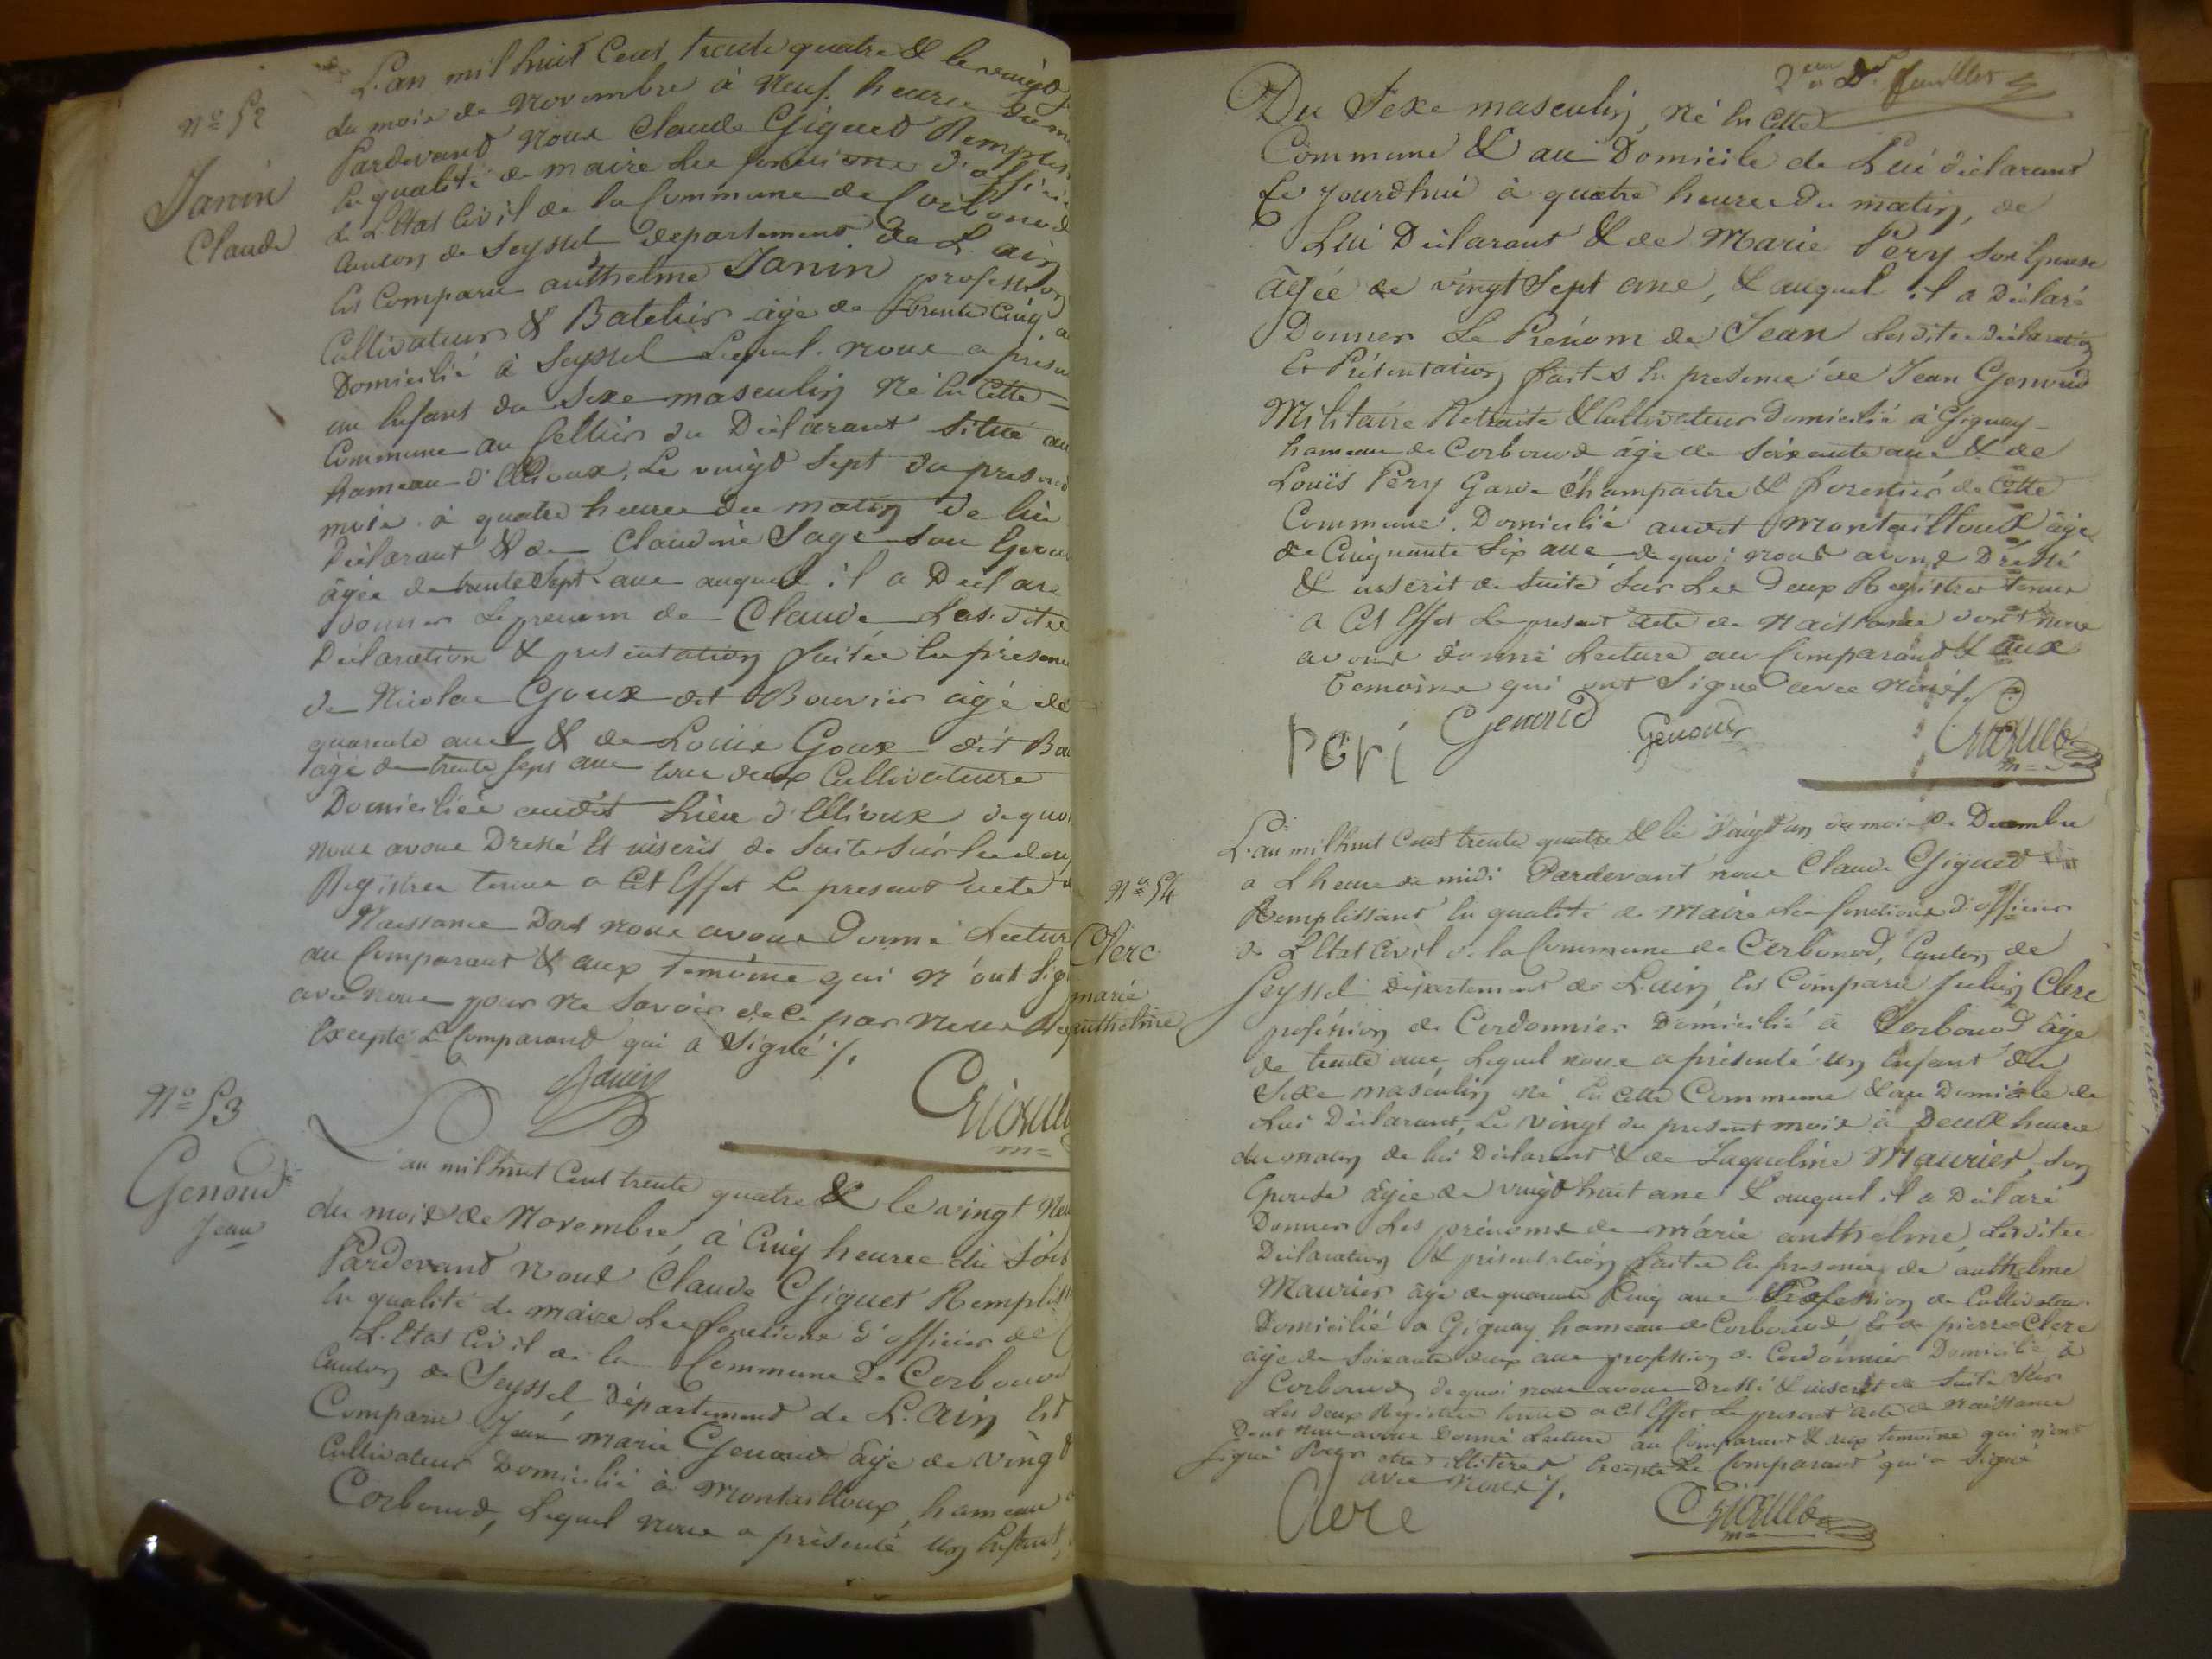 N° 52
Janin
Claude
L'an mil huit Cent trente quatre & le vingt
du mois de Novembre à Neuf heures du
Pardevant nous Claude Giguet Rempliss
En qualité de maire Les fonctions d'offici
de L'Etat Civil de la Commune de Corbonod
Canton de Seyssel departement de L'ain
Est Comparu anthelme Janin profession
Cultivateur & Batelier âgé de trente Cinq a
Domicilié à Seyssel Lequel nous a présen
un Enfant du Sexe masculin Né En Cette
Commune au Cellier du Déclarant Situé au
hameau d'Elioux, Le vingt Sept du present
mois à quatre heures du matin de lui
Déclarant & de Claudine Sage Son Epou
âgée de trente Sept ans auquel il a Déclaré
Donner Le prenom de Claude Les dites
Déclaration & présentation faites En présen
de Nicolas Goux dit Bouvier âgé de
quarante ans & de Louis Goux dit Bou
âgé de trente sept ans tous deux Cultivateurs
Domiciliés audit Lieu d'Elioux de quoi
nous avons Dressé Et inscrit de Suite Sur les deux
Registres tenus a Cet Effet Le present acte d
Naissance Dont nous avons Donné Lectur
au Comparant & aux temoins qui n'ont Sig
avec nous pour ne Savoir de Ce par Nous Req
Excepté Le Comparant qui a Signé ./.
Janin
Giguet
m=
N° 53
Genoud
Jean
L'an mil huit Cent trente quatre & le vingt Neu
du mois de Novembre, à Cinq heures du Soir
Pardevant nous Claude Giguet Rempliss
En qualité de maire Les fonctions d'officier de
L'Etat Civil de la Commune de Corbonod
Canton de Seyssel, Département de L'Ain Est
Comparu Jean marie Genoud âgé de vingt
Cultivateur Domicilié à Montailloux, hameau
Corbonod, Lequel nous a présenté un Enfant,
2eme & Dr. feuillet
Du Sexe masculin, Né En Cette
Commune & au Domicile de Lui déclarant
Ce jourd'hui à quatre heures du matin, de
Lui Déclarant & de Marie Pery Son Epouse
âgée de vingt Sept ans, & auquel il a Déclaré
Donner Le Prénom de Jean Les dites déclaration
Et Présentation faites En presence de Jean Genoud
Militaire Retraité & Cultivateur Domicilié à Gignay
hameau de Corbonod âgé de Soixante ans & de
Louis Péry Garde Champaitre & forestier de Cette
Commune, Domicilié audit Montailloux âgé
de Cinquante Six ans, de quoi nous avons Dressé
& inscrit de Suite Sur Les Deux Registres tenus
a Cet Effet Le present acte de Naissance dont nous
avons donné Lecture au Comparant & aux
temoins qui ont Signé avec nous ./.
Peri Genoud Genoud Giguet
m=
N° 54
Clerc
marie
anthelme
L'an mil huit Cent trente quatre & le Vingt un du mois de Decembre
a L'heure de midi Pardevant nous Claude Giguet
Remplissant En qualité de Maire Les fonctions d'officier
de L'Etat Civil de la Commune de Corbonod, Canton de
Seyssel département de L'ain, Est Comparu Julien Clerc
profession de Cordonnier Domicilié à Corbonod âgé
de trente ans, Lequel nous a présenté un Enfant du
Sexe masculin né En cette Commune & au Domicile de
Lui Déclarant, Le vingt du present mois à Deux heures
du matin de lui Déclarant & de Jaqueline Maurier, Son
Epouse âgée de vingt huit ans & auquel il a Déclaré
Donner Les prénoms de marie anthelme, Les dites
Déclaration & présentation faites En presence de anthelme
Maurier âgé de quarante Cinq ans Profession de Cultivateur
Domicilié a Gignay hameau de Corbonod, & de pierre Clerc
âgé de Soixante deux ans profession de Cordonnier Domicilié à
Corbonod, de quoi nous avons Dressé & inscrit de Suite Sur
Les Deux Registres tenus a Cet Effet Le present acte de Naissance
Dont nous avons Donné Lecture au Comparant & aux temoins qui n'ont
Signé Pour etre illitérés Excepté Le Comparant qui a Signé
avec nous ./.
Clerc Giguet
m=